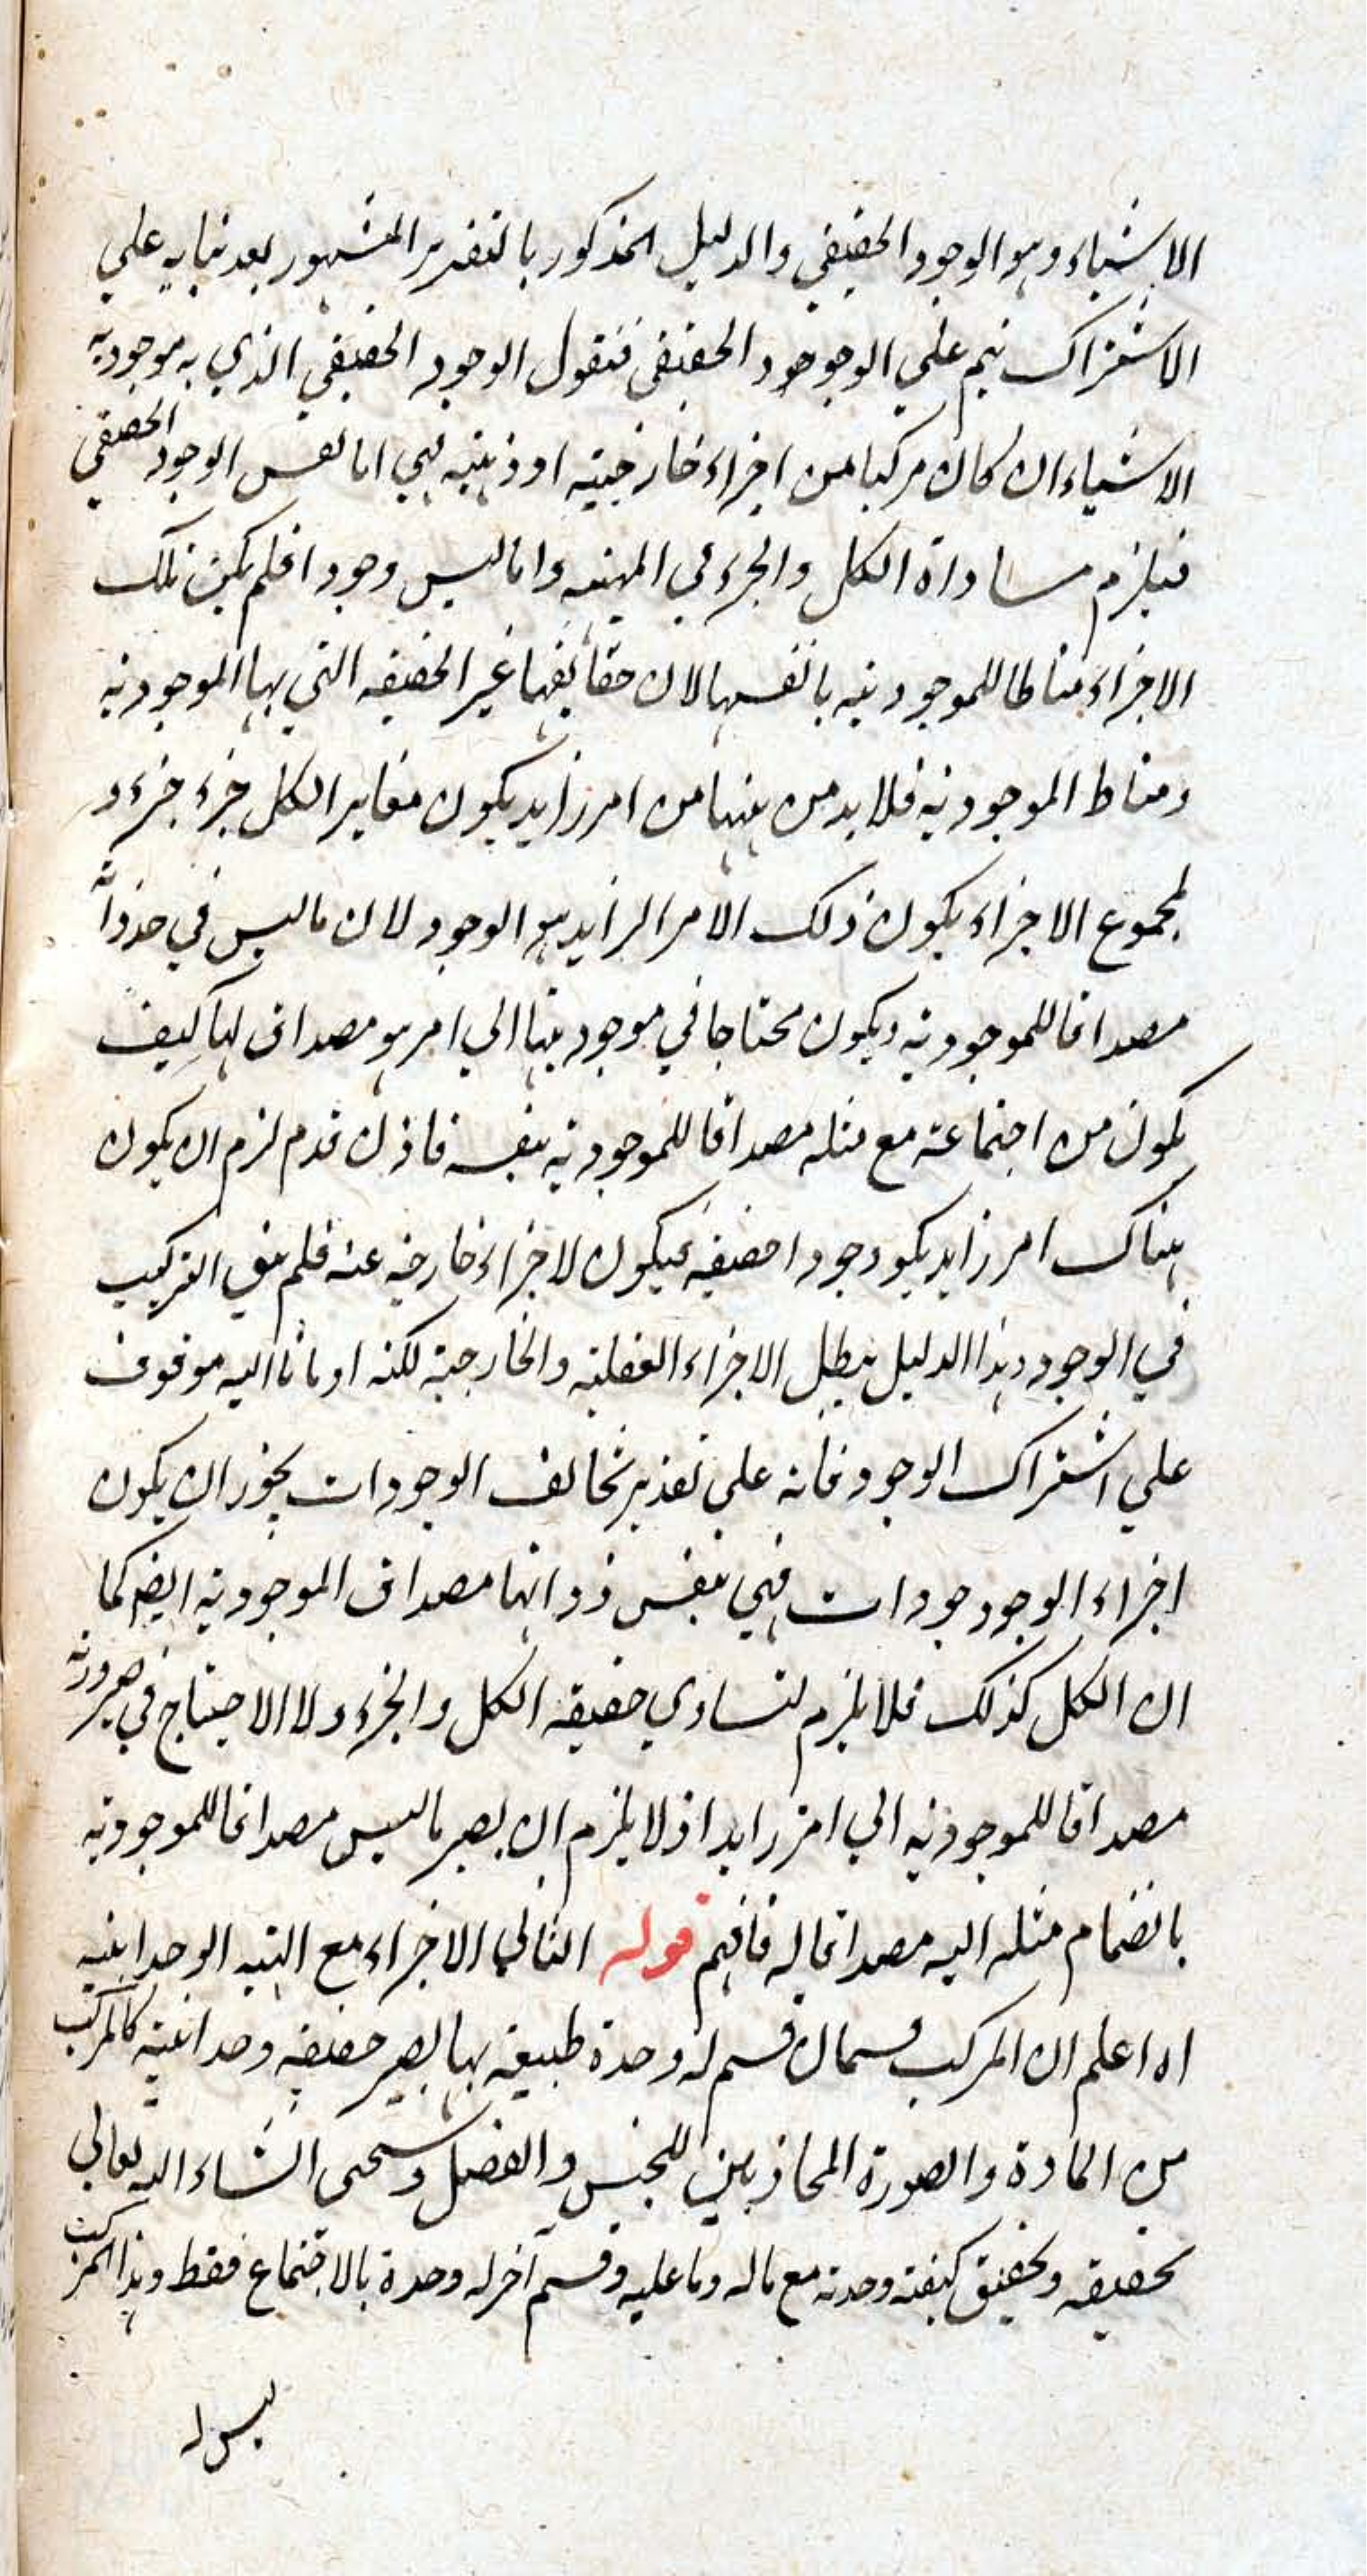 الاشياء وهو الوجود الحقيقي والدليل المذكور بالتقرير المشهور بعد بنايه علي
الاشتراك يتم علي الوجود الحقيقي فنقول الوجود الحقيقي الذي به موجودية
الاشياء ان كان مركبا من اجزاء خارجية او ذهنية فهي اما نفس الوجود الحقيقي
فيلزم مساواة الكل والجزء في المهية واما ليس وجودا فلم يكن تلك
الاجزاء مناطا للموجودية بانفسها لان حقايقها غير الحقيقه التي بها الموجودية
ومناط الموجودية فلا بد من بينها من امر زايد يكون مغايرا لكل جزء جزء و
لمجموع الاجزاء يكون ذلك الامر الزايد هو الوجود لان ما ليس في حد ذاته
مصداقا للموجودية ويكون محتاجا في موجوديتها الي امر هو مصداق لها كيف
يكون من اجتماعه مع مثله مصداقا للموجودية بنفسه فاذن قدم لزم ان يكون
هناك امر زايد يكو وجودا حقيقة فيكون الاجزاء خارجة عنه فلم يبق التركيب
في الوجود وهذا الدليل يبطل الاجزاء العقلية والخارجية لكنه اومانا اليه موقوف
علي اشتراك الوجود فانه علي تقدير تخالف الوجودات يجوز ان يكون
اجزاء الوجود جودات فهي بنفس ذواتها مصداق الموجودية ايضا كما
ان الكل كذلك فلا يلزم تساوي حقيقة الكل والجزء ولا الاحتياج في صيرورته
مصداقا للموجودية الي امر زايد اذ لا يلزم ان يصير ما ليس مصداقا للموجودية
بانضمام مثله اليه مصداقا له فافهم قوله الثاني الاجزاء مع الهيئة الوحدانية
اه اعلم ان المركب قسمان قسم له وحدة طبيعية بها يصير حقيقة وحدانية كالمركب
من المادة والصورة المحاذيين للجنس والفصل وسيجيء انشاء الله تعالي
تحقيقه وتحقيق كيفية وحدته مع ماله وما عليه وقسم آخر له وحدة بالاجتماع فقط وهذا المركب
ليس له